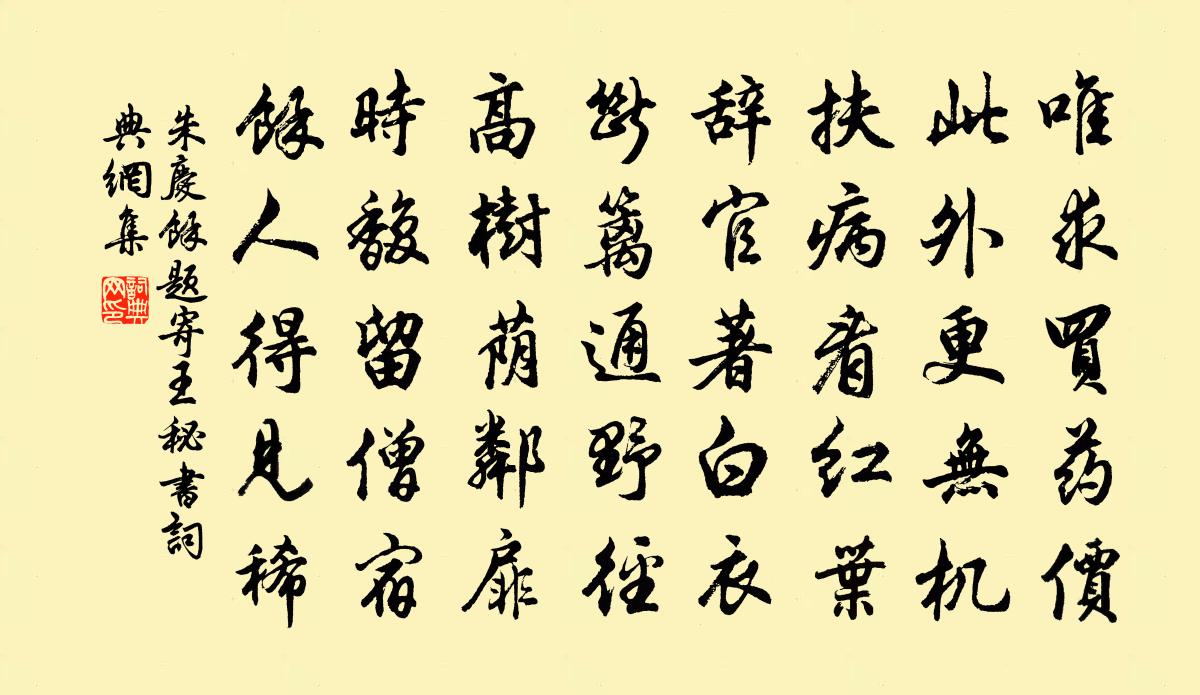 唯求買药價
此外更無机
扶病看红葉
辞官著白衣
斷篱通野径
高樹荫鄰扉
時馥留僧宿
餘人得見稀
朱慶餘题寄王秘書詞
典網集
詞典網印